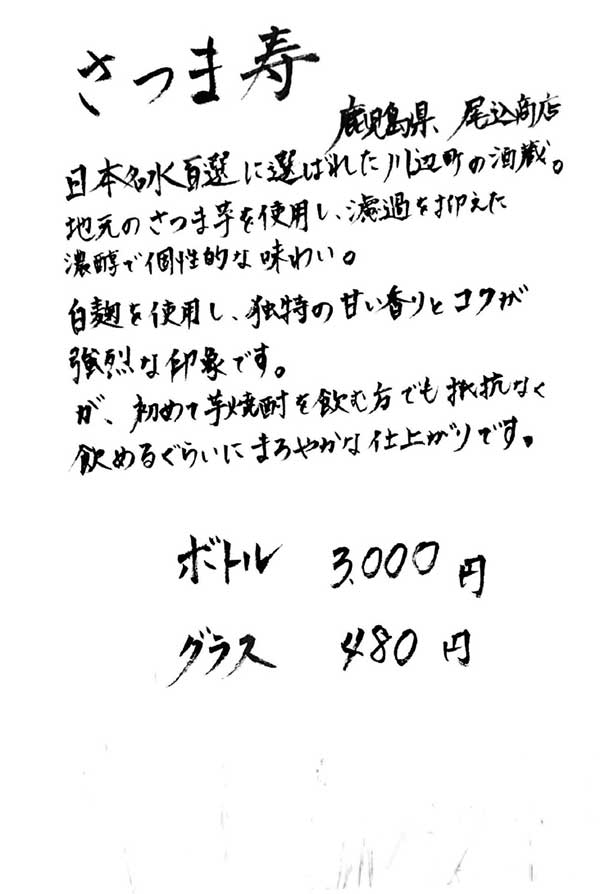 さつま寿
鹿児島県、尾込商店
日本名水百選に選ばれた川辺町の酒蔵。
地元のさつま芋を使用し、濾過を抑えた
濃醇で個性的な味わい。
白麹を使用し、独特の甘い香りとコクが
強烈な印象です。
が、初めて芋焼酎を飲む方でも抵抗なく
飲めるぐらいにまろやかな仕上がりです。
ボトル 3,000円
グラス 480円